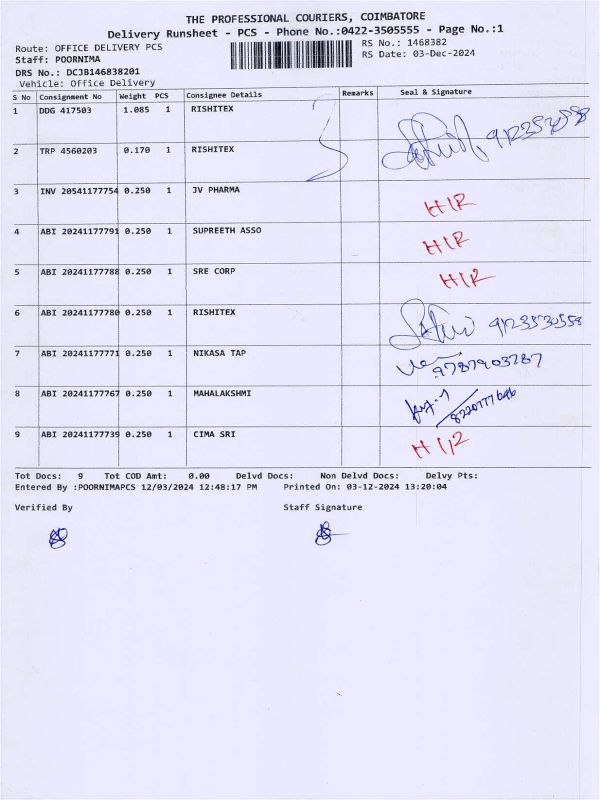 THE PROFESSIONAL COURIERS, COIMBATORE
Delivery Runsheet - PCS - Phone No.:0422-3505555 - Page No.:1
Route: OFFICE DELIVERY PCS RS No.: 1468382
Staff: POORNIMA RS Date: 03-Dec-2024
DRS No.: DCJB146838201
Vehicle: Office Delivery
S No Consignment No Weight PCS Consignee Details Remarks Seal & Signature
1 DDG 417503 1.085 1 RISHITEX
2 TRP 4560203 0.170 1 RISHITEX
3 INV 20541177754 0.250 1 JV PHARMA HIR
4 ABI 20241177791 0.250 1 SUPREETH ASSO HIR
5 ABI 20241177788 0.250 1 SRE CORP HIR
6 ABI 20241177780 0.250 1 RISHITEX 9123530558
7 ABI 20241177771 0.250 1 NIKASA TAP 9787903787
8 ABI 20241177767 0.250 1 MAHALAKSHMI
9 ABI 20241177739 0.250 1 CIMA SRI HIR
Tot Docs: 9 Tot COD Amt: 0.00 Delvd Docs: Non Delvd Docs: Delvy Pts:
Entered By :POORNIMAPCS 12/03/2024 12:48:17 PM Printed On: 03-12-2024 13:20:04
Verified By Staff Signature